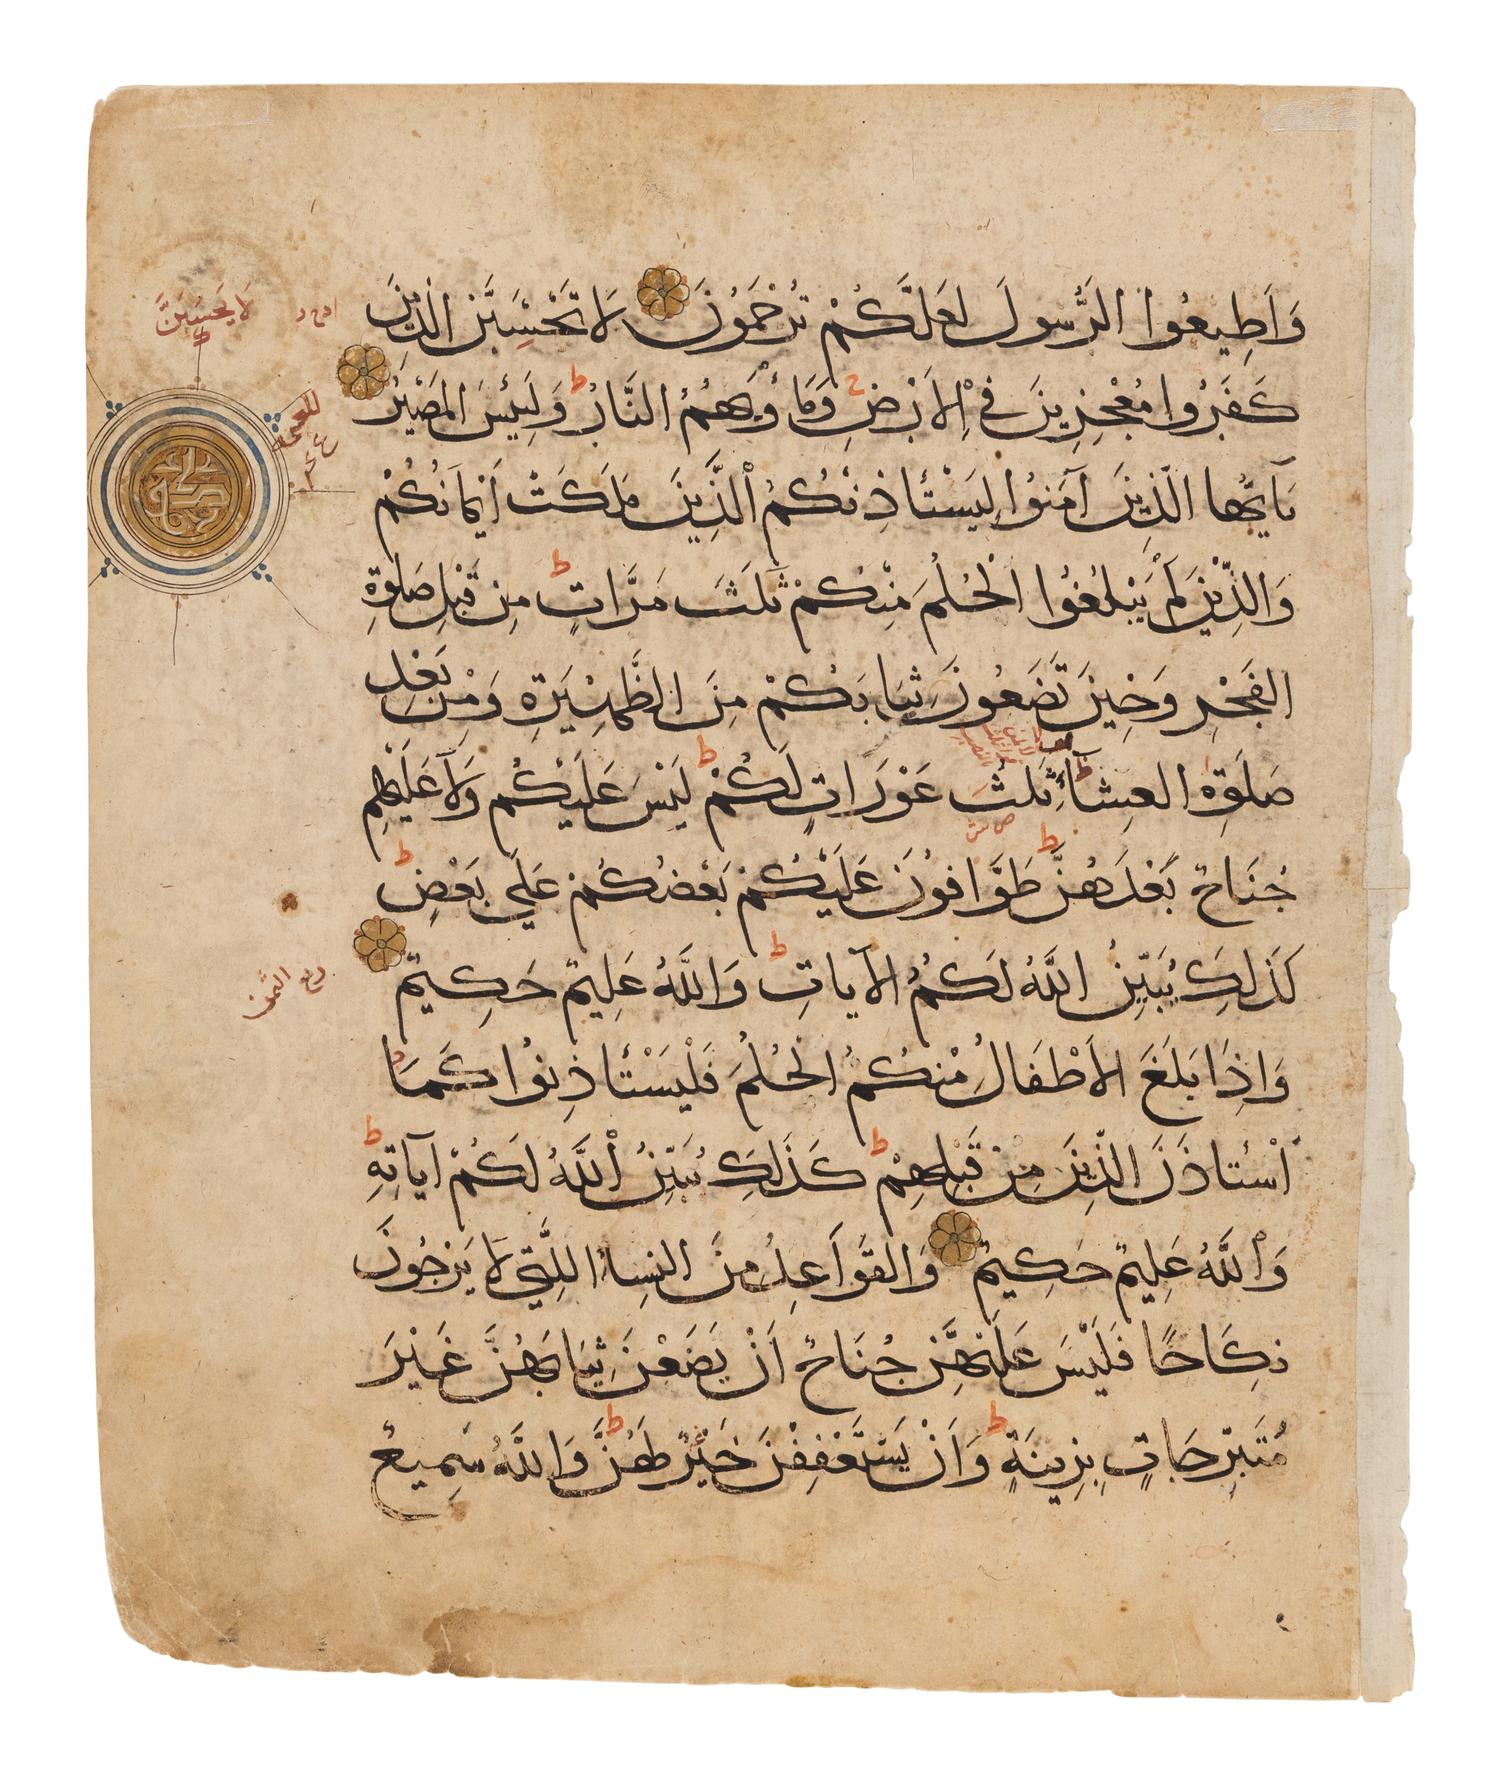 وَاَطِيعُوا الرَّسُولَ لَعَلَّكُمْ تُرْحَمُونَ لَا تَحْسِبَنَّ الَّذِينَ
كَفَرُوا مُعْجِزِينَ فِي الْاَرْضِ وَمَأْوٰىهُمُ النَّارُ وَلَبِئْسَ الْمَصِيرُ
يَآ اَيُّهَا الَّذِينَ آمَنُوا لِيَسْتَأْذِنْكُمُ الَّذِينَ مَلَكَتْ اَيْمَانُكُمْ
وَالَّذِينَ لَمْ يَبْلُغُوا الْحُلُمَ مِنْكُمْ ثَلٰثَ مَرَّاتٍ مِنْ قَبْلِ صَلٰوةِ
الْفَجْرِ وَحِينَ تَضَعُونَ ثِيَابَكُمْ مِنَ الظَّهِيرَةِ وَمِنْ بَعْدِ
صَلٰوةِ الْعِشَآءِ ثَلٰثُ عَوْرَاتٍ لَكُمْ لَيْسَ عَلَيْكُمْ وَلَا عَلَيْهِمْ
جُنَاحٌ بَعْدَهُنَّ طَوَّافُونَ عَلَيْكُمْ بَعْضُكُمْ عَلٰى بَعْضٍ
كَذٰلِكَ يُبَيِّنُ اللّٰهُ لَكُمُ الْآيَاتِ وَاللّٰهُ عَلِيمٌ حَكِيمٌ
وَاِذَا بَلَغَ الْاَطْفَالُ مِنْكُمُ الْحُلُمَ فَلْيَسْتَأْذِنُوا كَمَا
اسْتَأْذَنَ الَّذِينَ مِنْ قَبْلِهِمْ كَذٰلِكَ يُبَيِّنُ اللّٰهُ لَكُمْ آيَاتِهِ
وَاللّٰهُ عَلِيمٌ حَكِيمٌ وَالْقَوَاعِدُ مِنَ النِّسَاءِ اللَّتِي لَا يَرْجُونَ
نِكَاحًا فَلَيْسَ عَلَيْهِنَّ جُنَاحٌ اَنْ يَضَعْنَ ثِيَابَهُنَّ غَيْرَ
مُتَبَرِّجَاتٍ بِزِينَةٍ وَاَنْ يَسْتَعْفِفْنَ خَيْرٌ لَهُنَّ وَاللّٰهُ سَمِيعٌ
لَا يَحْسَبَنَّ